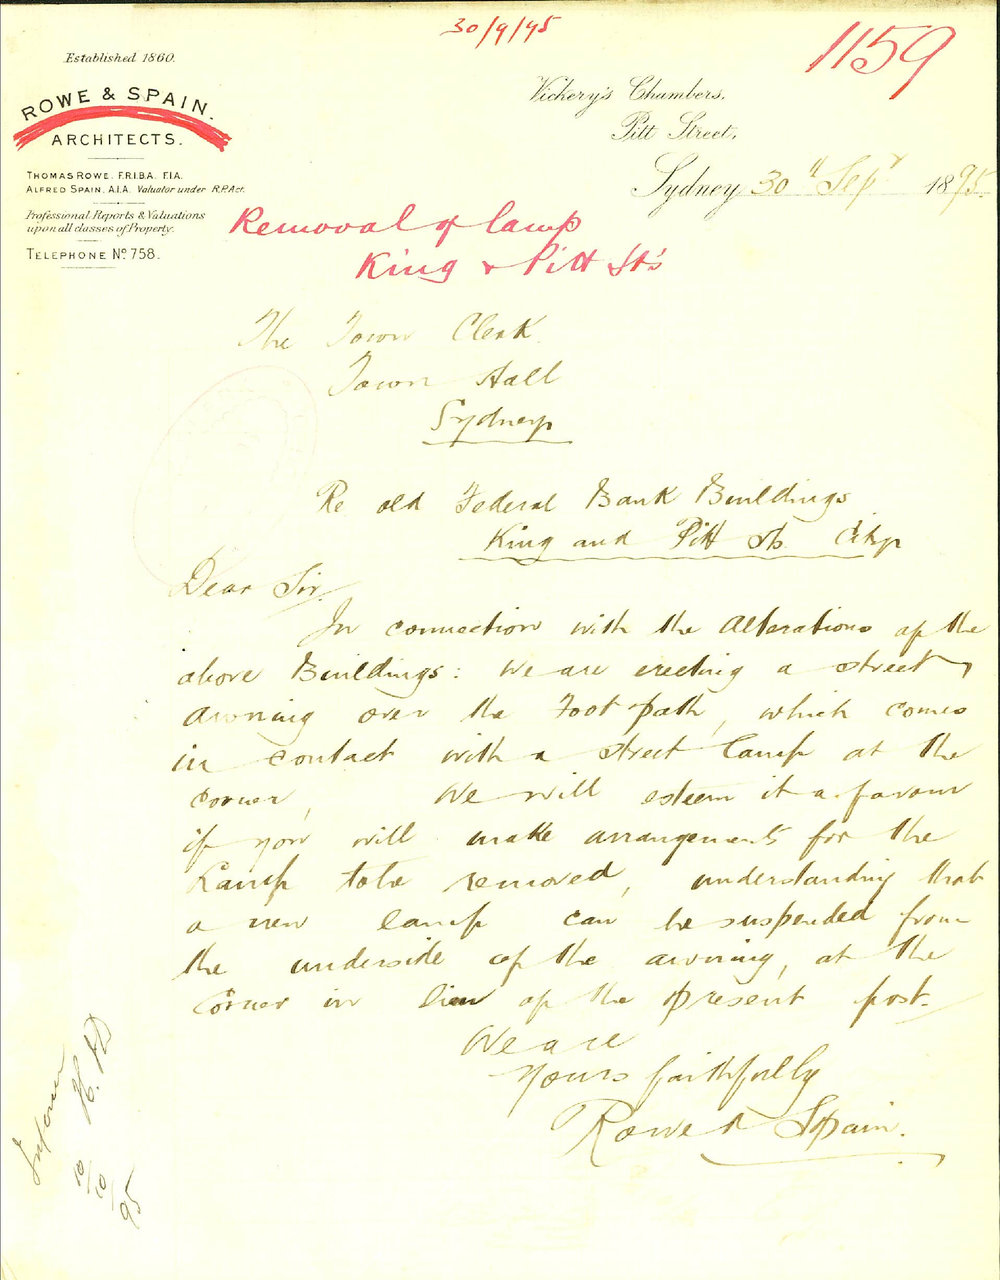 30/9/95
1159
Established 1860.
ROWE & SPAIN.
ARCHITECTS.
THOMAS ROWE. F.R.I.B.A. F.I.A.
ALFRED SPAIN. A.I.A. Valuator under R.P. Act.
Professional Reports & Valuations
upon all classes of Property.
TELEPHONE No. 758.
Vickery's Chambers,
Pitt Street,
Sydney 30th Sepr 1895.
Removal of lamp
King & Pitt St's
The Town Clerk
Town Hall
Sydney
Re old Federal Bank Buildings
King and Pitt Sts. City
Dear Sir,
In connection with the Alterations of the
above Buildings: we are erecting a street
awning over the Foot path, which comes
in contact with a street Lamp at the
corner, We will esteem it a favour
if you will make arrangements for the
Lamp to be removed, understanding that
a new lamp can be suspended from
the underside of the awning, at the
corner in lieu of the present post.
We are
Yours faithfully
Rowe & Spain.
Inform
10/10/95